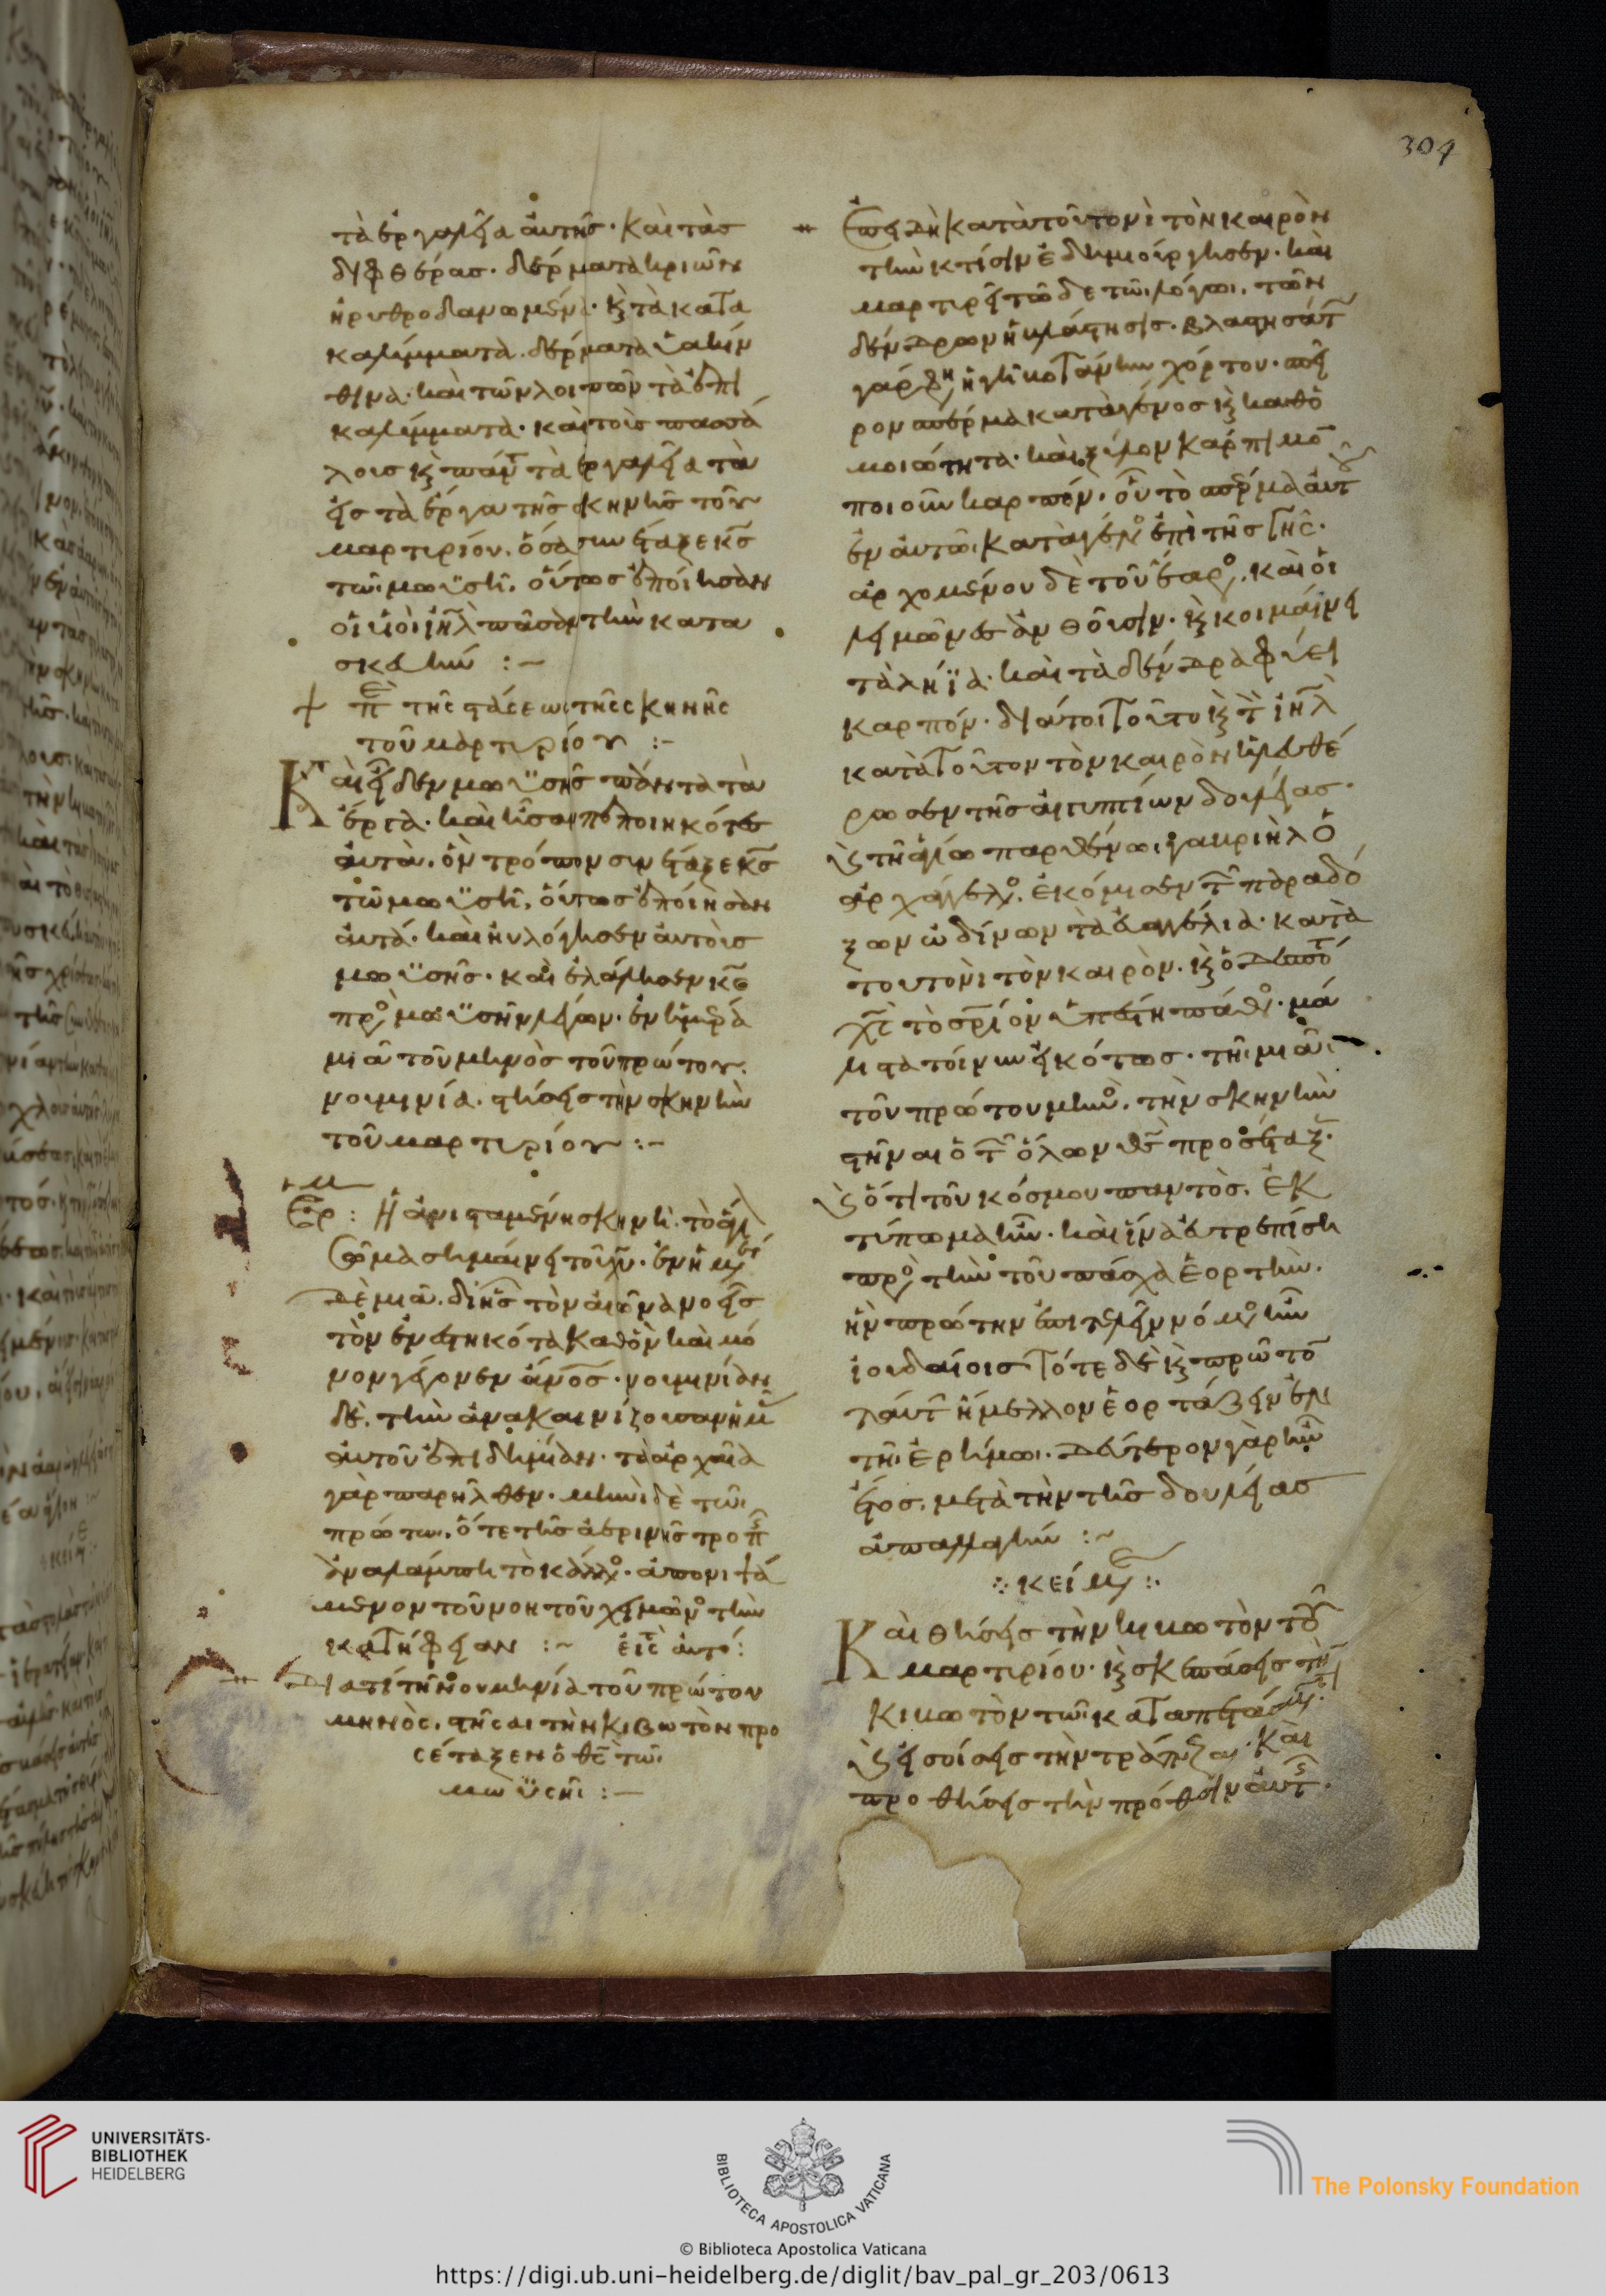 304
τὰ ἐργαλεῖα αὐτῆς· καὶ τὰς
διφθέρας· δέρματα κριῶν
ἠρυθροδανωμένα· ϗ τὰ κατα
καλύμματα. δέρματα ὑακίν
θινα· καὶ τῶν λοιπῶν τὰ ἐπι
καλύμματα· καὶ τοὺς πασσά
λους ϗ πάντ τὰ ἐργαλεῖα τὰ
εἰς τὰ ἔργα τῆς σκηνῆς τοῦ
μαρτυρίου. ὅσα συνέταξε κς
τῶι μωϋσῆ. οὕτως ἐποίησαν
οἱ υἱοὶ ιηλ πᾶσαν τὴν κατα
σκευήν :~
πε τῆς στάσεως τῆς σκηνῆς
τοῦ μαρτυρίου :-
Καὶ εἶδεν μωϋσῆς πάντα τὰ
ἔργα· καὶ ἦσαν πεποιηκότες
αὐτὰ. ὃν τρόπον συνέταξε κς
τῶ μωϋσῆ, οὕτως ἐποίησαν
αὐτά· καὶ ηὐλόγησεν αὐτοὺς
μωϋσῆς· καὶ ἐλάλησεν κς
πρὸς μωϋσῆν λέγων· ἐν ἡμέρα
μιᾶ τοῦ μηνὸς τοῦ πρώτου.
νουμηνία. στήσεις τὴν σκηνὴν
τοῦ μαρτυρίου :-
Ἡ ἀνισταμένη σκηνὴ. τὸ ἅγι
σῶμα σημαίνει τοῦ χυ· ἐν ἡμε
δὲ μιᾶ. δι ἧς τὸν αἰῶνα νοεῖς
τὸν ἐνεστηκότα καθ ὃν καὶ μό
νον γέγονεν ἄνος· νουμηνίαν
δὲ. τὴν ἀνακαινίζουσαν ἡμ
αὐτοῦ ἐπιδημίαν· τὰ ἀρχαῖα
γὰρ παρῆλθεν· μηνὶ δὲ τῶι
πρώτω. ὅτε τῆς ἐαρινῆς τροπῆς
ἀναλάμπει τὸ κάλλος· ἀπονιψά
μενον τοῦ νοητοῦ χειμῶνος τὴν
κατήφειαν :~ εἰς τ αὐτό:
Διατί τῆ νουμηνία τοῦ πρώτου
μηνὸς. στῆσαι τὴν κιβωτὸν προ
σέταξεν ὁ θς τῶι
μωϋσῆι :-
Ἐπειδὴ κατὰ τουτονὶ τὸν καιρὸν
τὴν κτίσιν ἐδημιούργησεν· καὶ
μαρτυρεῖ τῶδε τῶι λόγωι. τῶν
δένδρων ἡ βλάστησις· βλαστησάτ
γάρ φη ἡ γῆ βοτάνην χόρτου· σπεῖ
ρον σπέρμα κατὰ γένος ϗ καθ ὁ
μοιότητα· καὶ ξύλον κάρπιμο
ποιοῦν καρπόν· οὗ τὸ σπέρμα αὐτοῦ
ἐν αὐτῶι κατὰ γένος ἐπὶ τῆς γῆς.
ἀρχομένου δὲ τοῦ ἔαρος. καὶ οἱ
λειμῶνες ἀνθοῦσιν· ϗ κυμαίνει
τὰ λήϊα· καὶ τὰ δένδρα φύει
καρπόν· διάτοι τοῦτο ϗ τ ιηλ
κατὰ τοῦτον τὸν καιρὸν ἠλευθέ
ρωσεν τῆς αἰγυπτίων δουλείας·
ϗ τῆ ἁγίω παρθένωι γαυριὴλ ὁ
ἀρχάγγελος. ἐκόμισεν τ παραδό
ξων ὠδίνων τὰ εὐαγγέλια· κατὰ
τουτονὶ τὸν καιρὸν. ϗ ὁ δεσπότ
χς τὸ σριον ὑπέστη πάθος· μά
λιστα τοίνυν εἰκότως· τῆι μιᾶι
τοῦ πρώτου μηνὸς. τὴν σκηνὴν
στῆναι ὁ τ ὅλων θς προσέταξ.
ϗ ὅτι τοῦ κόσμου παντὸς. ἐκ
τύπωμα ἦν· καὶ ἵνα εὐτρεπίση
πρὸς τὴν τοῦ πάσχα ἑορτὴν.
ἣν πρώτην ἐπιτελεῖν νόμος ἦν
ἰουδαίοις τότε δὲ ϗ πρῶτο
ταύτ ἤμελλον ἑορτάζειν ἐν
τῆι ἐρήμωι. δεύτερον γὰρ ἦν
ἔτος. μετὰ τὴν τῆς δουλείας
ἀπαλλαγήν :~
∴ κείμε :·
Καὶ θήσεις τὴν κιβωτὸν τοῦ
μαρτυρίου· ϗ σκεπάσεις τὴν
κιβωτὸν τῶι καταπετάσμτι.
ϗ εἰσοίσεις τὴν τράπεζαν· καὶ
προθήσεις τὴν πρόθεσιν αὐτῆς.
UNIVERSITÄTS-
BIBLIOTHEK
HEIDELBERG
BIBLIOTECA APOSTOLICA VATICANA
The Polonsky Foundation
© Biblioteca Apostolica Vaticana
https://digi.ub.uni-heidelberg.de/diglit/bav_pal_gr_203/0613